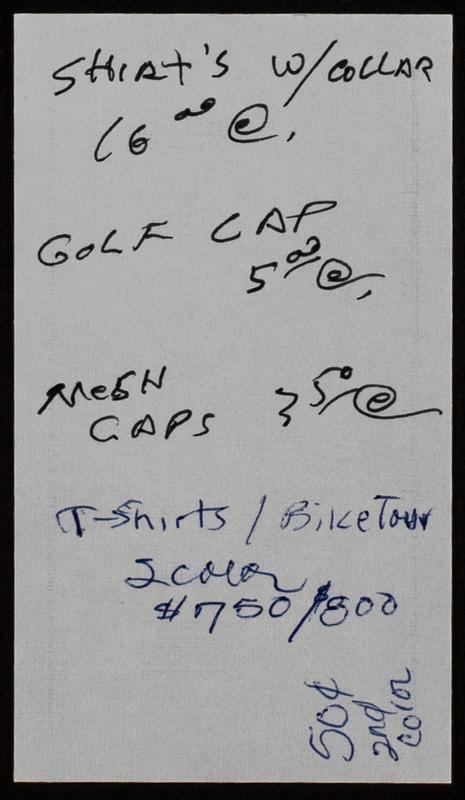 SHIRT'S W/COLLAR
16 00 @,
GOLF CAP
5 00 @,
MeSH
CAPS 3 50 @
T-Shirts / Bike Tour
2 color
$750/$800
50¢
2nd
color